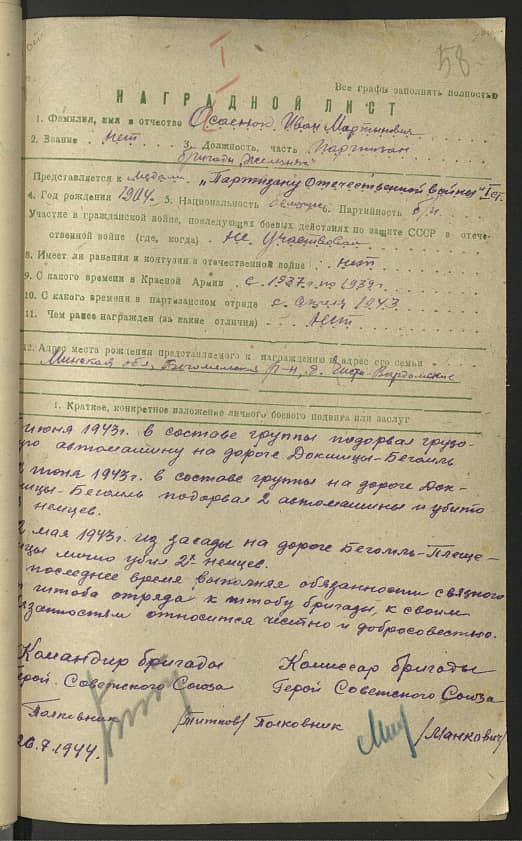 I
58
Все графы заполнять полностью
НАГРАДНОЙ ЛИСТ
1. Фамилия, имя и отчество Осаенок Иван Мартинович
2. Звание нет 3. Должность, часть партизан
бригады „Железняк"
Представляется к медали „Партизану Отечественной войны" I ст.
4. Год рождения 1904. 5. Национальность белорус 6. Партийность б/п.
Участие в гражданской войне, последующих боевых действиях по защите СССР в отече-
ственной войне (где, когда) Не участвовал
8. Имеет ли ранения и контузии в отечественной войне нет
9. С какого времени в Красной Армии с 1937г. по 1939г.
10. С какого времени в партизанском отряде с 1943
11. Чем ранее награжден (за какие отличия) Нет
12. Адрес места рождения представляемого к награждению и адрес его семьи
Минская обл, Бегомльский р-н, д.
1. Краткое, конкретное изложение личного боевого подвига или заслуг
июня 1943г. в составе группы подорвал грузо-
ую автомашину на дороге Докшицы-Бегомль
июня 1943г. в составе группы на дороге Док-
ицы-Бегомль подорвал 2 автомашины и убито
немцев.
мая 1943г. из засады на дороге Бегомль-Плеще-
ицы лично убил 2х немцев.
последнее время выполняя обязанности связного
штаба отряда к штабу бригады, к своим
язанностям относится честно и добросовестно.
Командир бригады Комиссар бригады
Герой Советского Союза Герой Советского Союза
Полковник /Титков/ Полковник /Манкович/
26.7.1944.